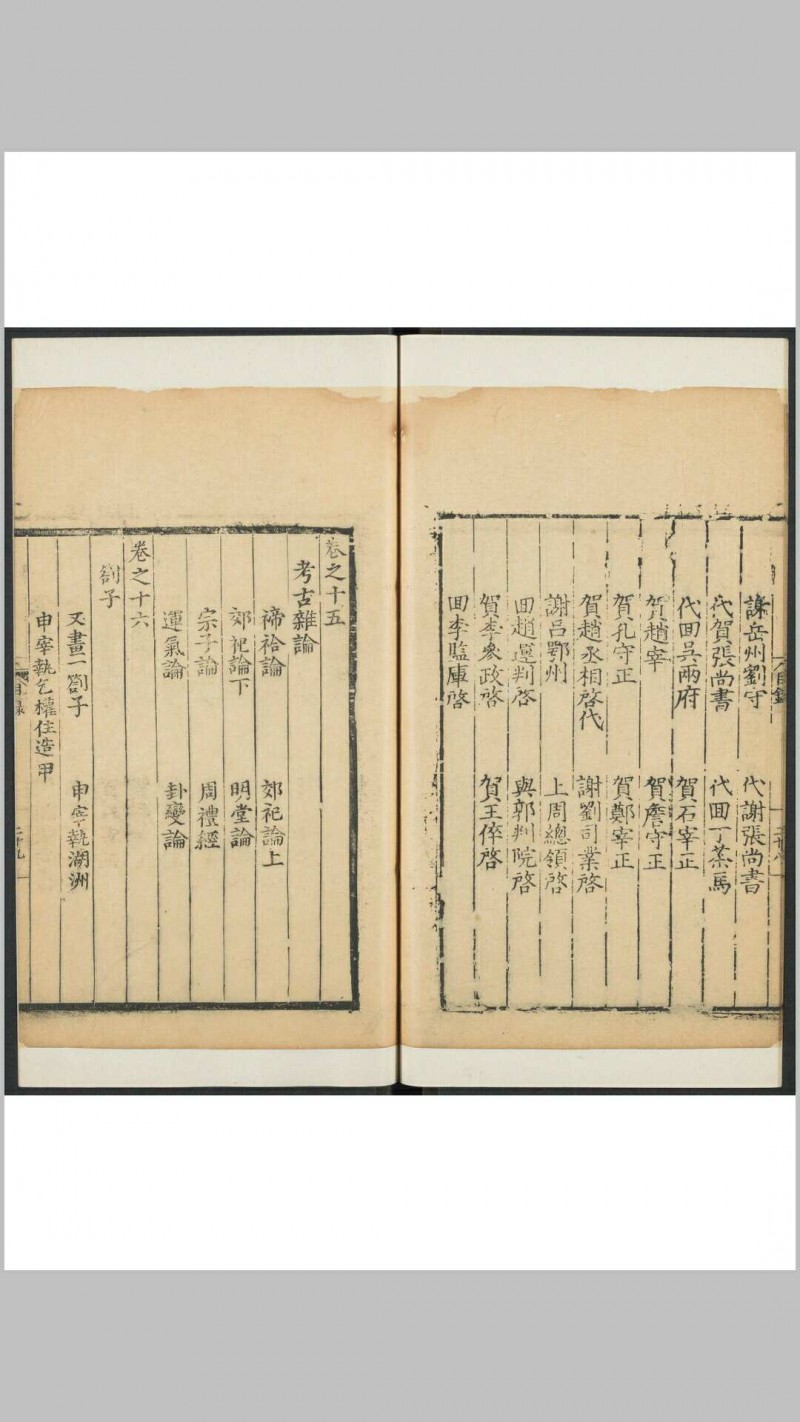 謝岳州劉守　代謝張尚書
代賀張尚書　代囬丁茶馬
代囬吳兩府　賀石宰正
賀趙宰　賀詹守正
賀孔守正　賀鄭宰正
賀趙丞相啓代　謝劉司業啓
謝呂鄂州　上周總領啓
囬趙運判啓　與郭判院啓
賀李參政啓　賀王倅啓
囬李監庫啓
卷之十五
考古雜論
禘祫論　郊祀論上
郊祀論下　明堂論
宗子論　周禮經
運氣論　卦變論
卷之十六
劄子
又畫一劄子　申宰執湖洲
申宰執乞權住造甲
目錄